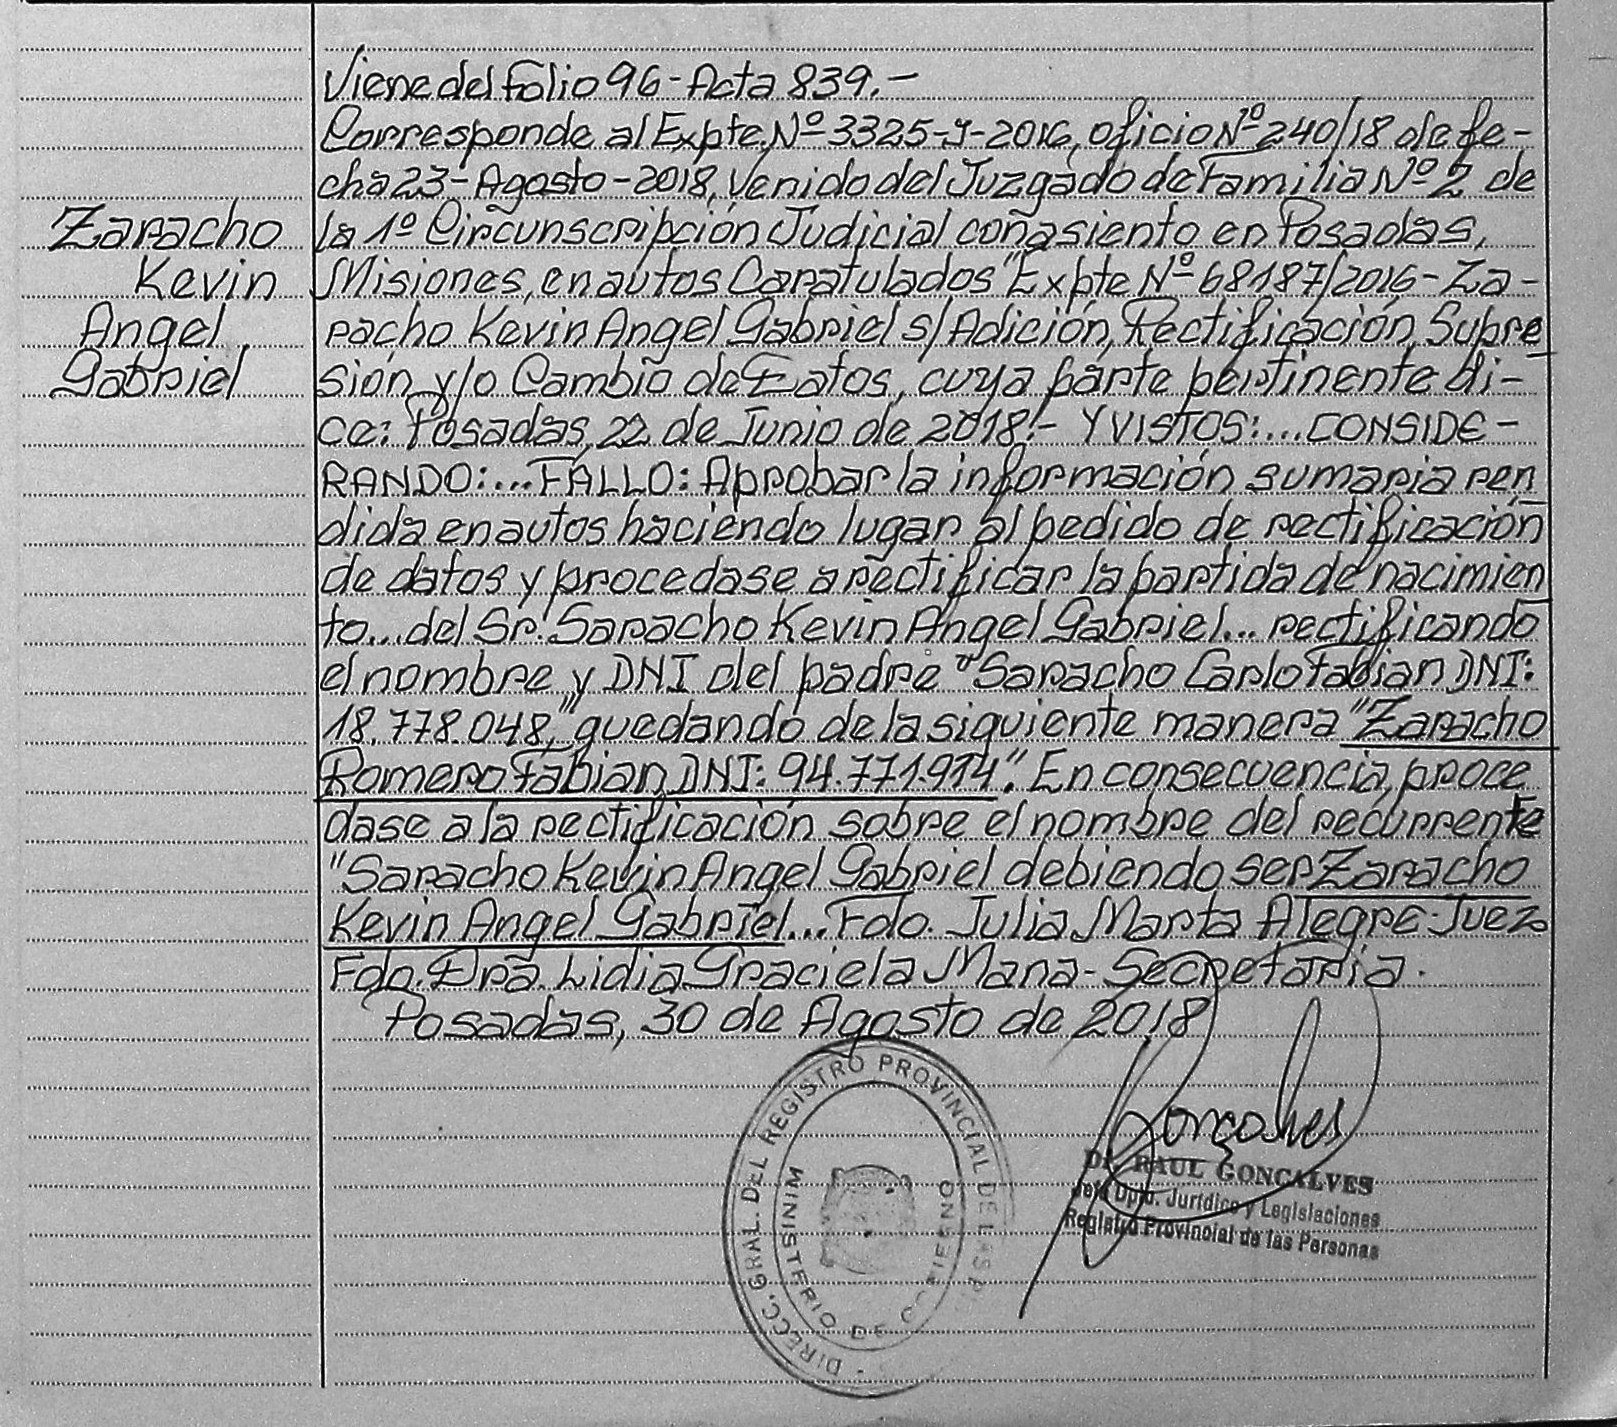 Viene del Folio 96 - Acta 839.-
Corresponde al Expte. Nº 3325-J-2016, oficio Nº 240/18 de fe-
cha 23-Agosto-2018, Venido del Juzgado de Familia Nº 2 de
la 1º Circunscripción Judicial con asiento en Posadas,
Misiones, en autos Caratulados "Expte Nº 68187/2016-Za-
racho Kevin Angel Gabriel s/Adición, Rectificación, Supre
sión y/o Cambio de Datos, cuya parte pertinente di-
ce: Posadas, 22 de Junio de 2018.- Y VISTOS:... CONSIDE-
RANDO:... FALLO: Aprobar la información sumaria ren
dida en autos haciendo lugar al pedido de rectificación
de datos y procedase a rectificar la partida de nacimien
to... del Sr. Saracho Kevin Angel Gabriel... rectificando
el nombre y DNI del padre "Saracho Carlo Fabian DNI:
18.778.048," quedando de la siguiente manera "Zaracho
Romero Fabian, DNI: 94.771.914". En consecuencia, proce
dase a la rectificación sobre el nombre del recurrente
"Saracho Kevin Angel Gabriel debiendo ser Zaracho
Kevin Angel Gabriel... Fdo. Julia Marta Alegre-Juez
Fdo. Dra. Lidia Graciela Mana-Secretaria.
Posadas, 30 de Agosto de 2018
Zaracho
Kevin
Angel
Gabriel
DIRECC. GRAL. DEL REGISTRO PROVINCIAL DE LAS P
MINISTERIO DE GOBIERNO
Goncalves
Dr. RAUL GONCALVES
Jefe Dpto. Jurídico y Legislaciones
Registro Provincial de las Personas